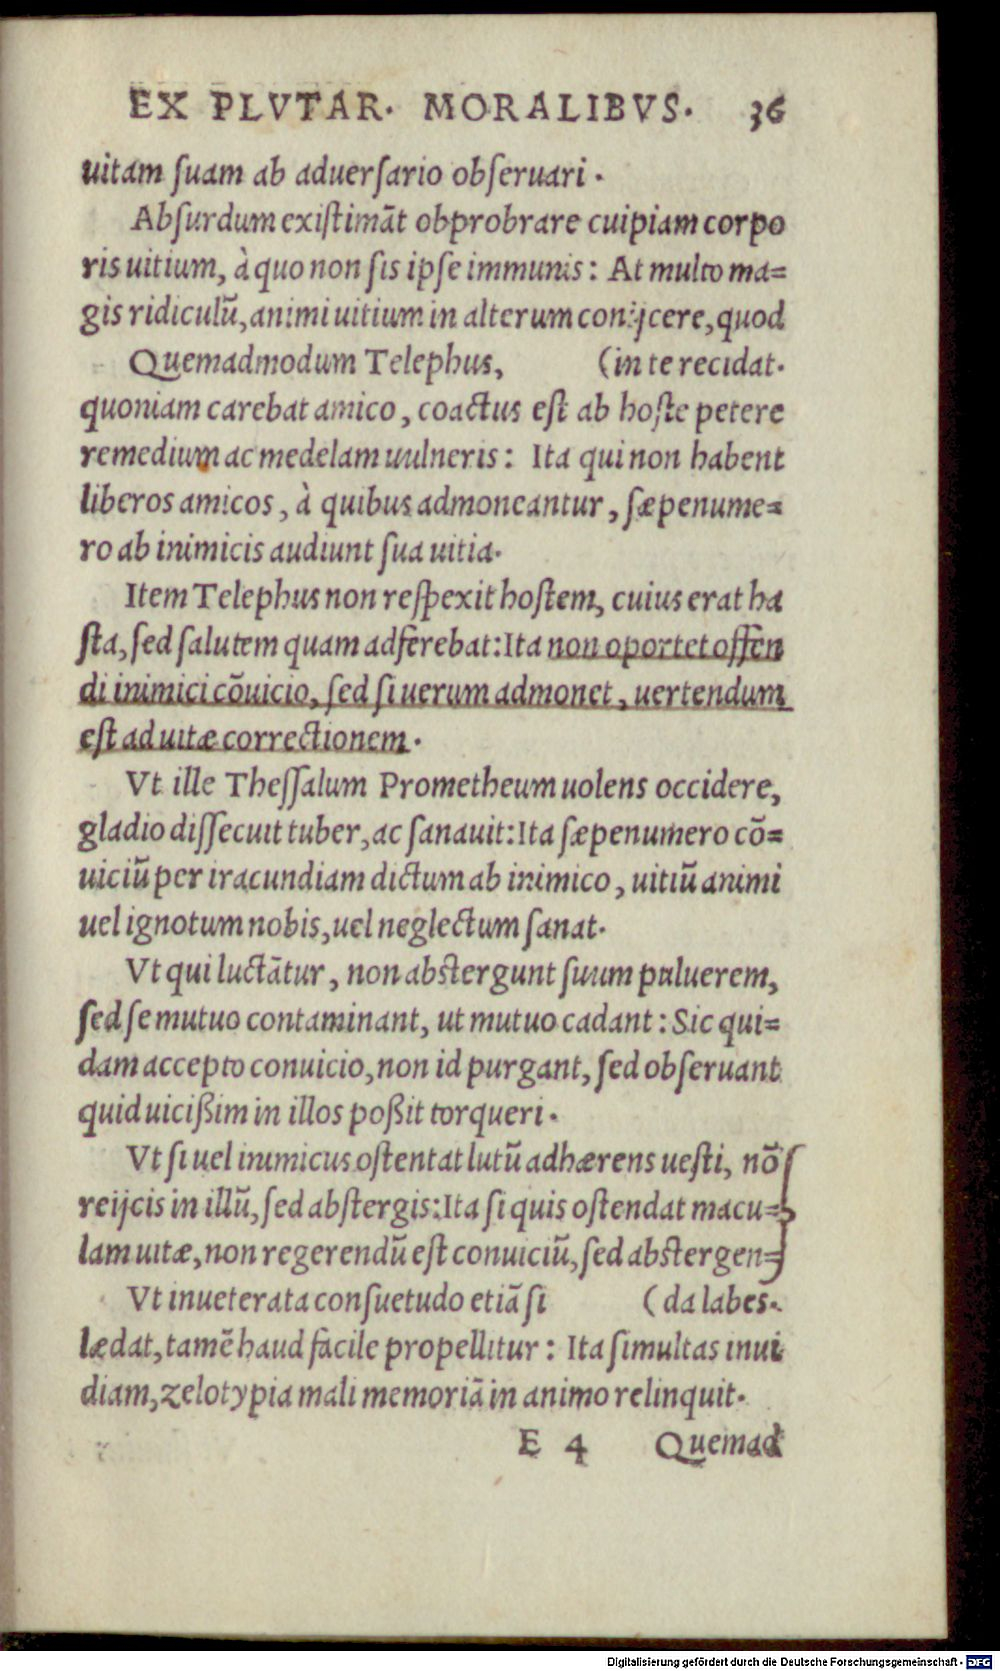 EX PLVTAR. MORALIBVS. 36
uitam ſuam ab aduerſario obſeruari.
Abſurdum exiſtimāt obprobrare cuipiam corpo
ris uitium, à quo non ſis ipſe immunis: At multo ma=
gis ridiculū, animi uitium in alterum conijcere, quod
Quemadmodum Telephus, (in te recidat.
quoniam carebat amico, coactus eſt ab hoſte petere
remedium ac medelam uulneris: Ita qui non habent
liberos amicos, à quibus admoneantur, ſæpenume=
ro ab inimicis audiunt ſua uitia.
Item Telephus non reſpexit hoſtem, cuius erat ha
ſta, ſed ſalutem quam adferebat: Ita non oportet offen
di inimici cōuicio, ſed ſi uerum admonet, uertendum
eſt ad uitæ correctionem.
Vt ille Theſſalum Prometheum uolens occidere,
gladio diſſecuit tuber, ac ſanauit: Ita ſæpenumero cō=
uiciū per iracundiam dictum ab inimico, uitiū animi
uel ignotum nobis, uel neglectum ſanat.
Vt qui luctātur, non abſtergunt ſuum puluerem,
ſed ſe mutuo contaminant, ut mutuo cadant: Sic qui=
dam accepto conuicio, non id purgant, ſed obſeruant
quid uicißim in illos poßit torqueri.
Vt ſi uel inimicus oſtentat lutū adhærens ueſti, nō
reijcis in illū, ſed abſtergis: Ita ſi quis oſtendat macu=
lam uitæ, non regerendū eſt conuiciū, ſed abſtergen=
Vt inueterata conſuetudo etiā ſi (da labes.
lædat, tamē haud facile propellitur: Ita ſimultas inui
diam, zelotypia mali memoriā in animo relinquit.
E 4 Quemad
Digitalisierung gefördert durch die Deutsche Forschungsgemeinschaft - DFG